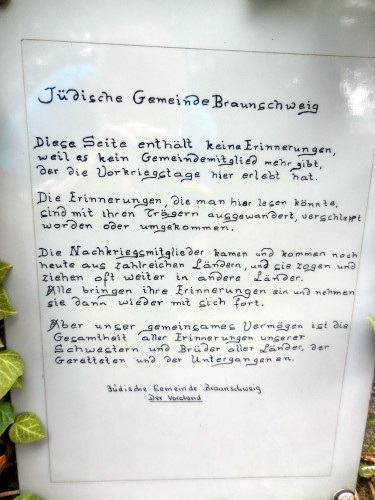 Jüdische Gemeinde Braunschweig
Diese Seite enthält keine Erinnerungen,
weil es kein Gemeindemitglied mehr gibt,
der die Vorkriegstage hier erlebt hat.
Die Erinnerungen, die man hier lesen könnte,
sind mit ihren Trägern ausgewandert, verschleppt
worden oder umgekommen.
Die Nachkriegsmitglieder kamen und kommen noch
heute aus zahlreichen Ländern, und sie zogen und
ziehen oft weiter in andere Länder.
Alle bringen ihre Erinnerungen ein und nehmen
sie dann wieder mit sich fort.
Aber unser gemeinsames Vermögen ist die
Gesamtheit aller Erinnerungen unserer
Schwestern und Brüder aller Länder, der
Geretteten und der Untergangenen.
Jüdische Gemeinde Braunschweig
Der Vorstand